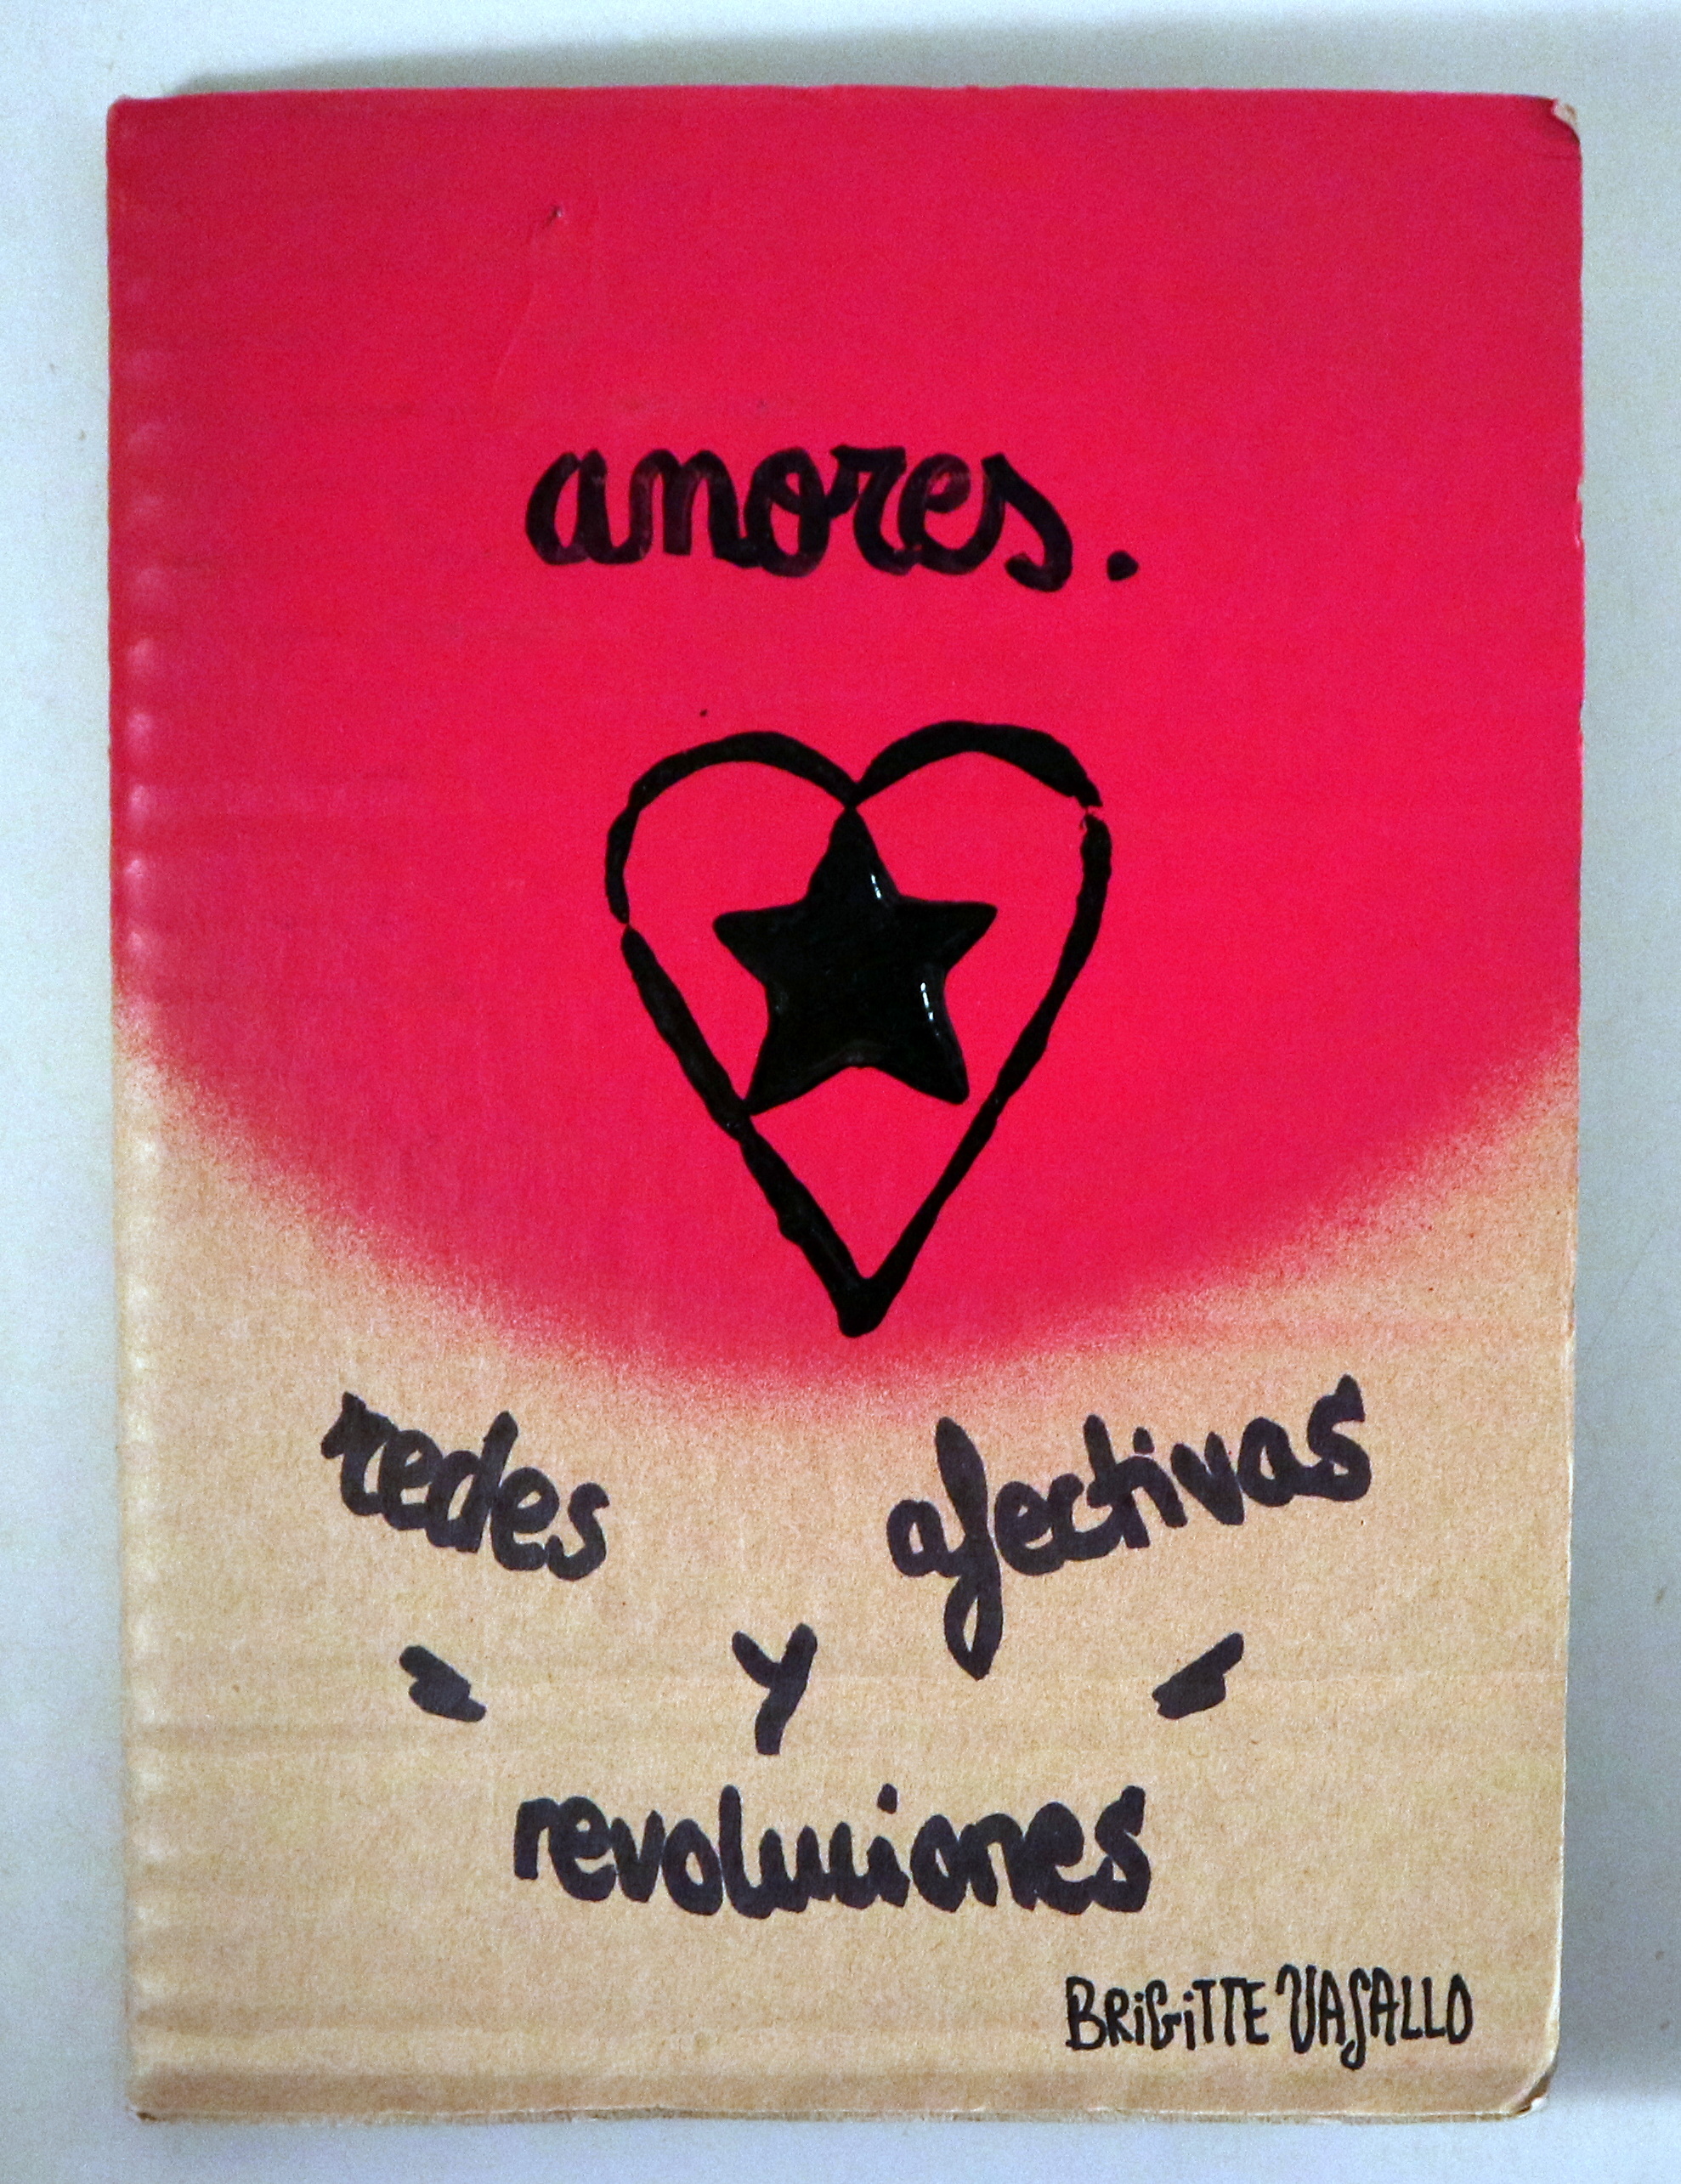 amores.
redes afectivas
- y -
revoluciones
BRIGITTE VASALLO